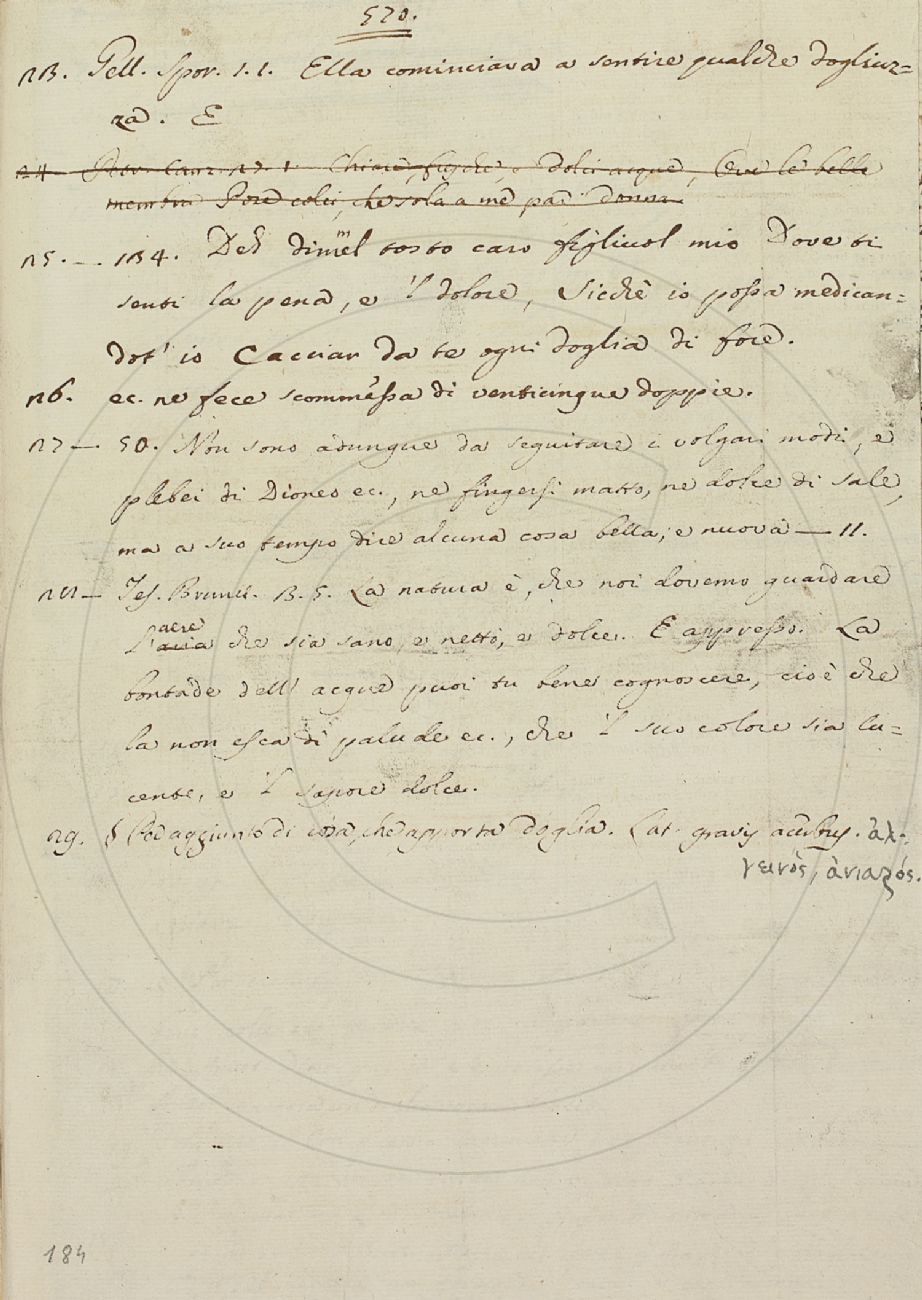 570.
23. Gell. Spor. 1. 1. Ella cominciava a sentire qualche dogliuz=
za. E
24 Petr. Canz. 27. 1. Chiare, fresche, e dolci acque, Ove le belle
membra Pose colei, che sola a me par donna
25. — 134. Deh dimmel tosto caro figliuol mio Dove ti
senti la pena, e 'l dolore, Sicchè io possa medican=
dot' io Cacciar da te ogni doglia di fore.
26. ec. ne fece scommessa di venticinque doppie.
27 — 50. Non sono adunque da seguitare i volgari modi, e
plebei di Dioneo ec., ne fingersi matto, ne dolce di sale,
ma a suo tempo dire alcuna cosa bella, e nuova — 11.
28 — Tes. Brunet. 3. 5. La natura è, che noi dovemo guardare
L'aere aria che sia sano, e netto, e dolce. E appresso. La
bontade dell' acque puoi tu bene cognoscere, cioè che
la non esca di palude ec., che 'l suo colore sia lu=
cente, e 'l sapore dolce.
29. § Per aggiunto di cosa, che apporta doglia. Lat. gravis acerbus. ἀλ=
γεινὸς, ἀνιαρός.
184